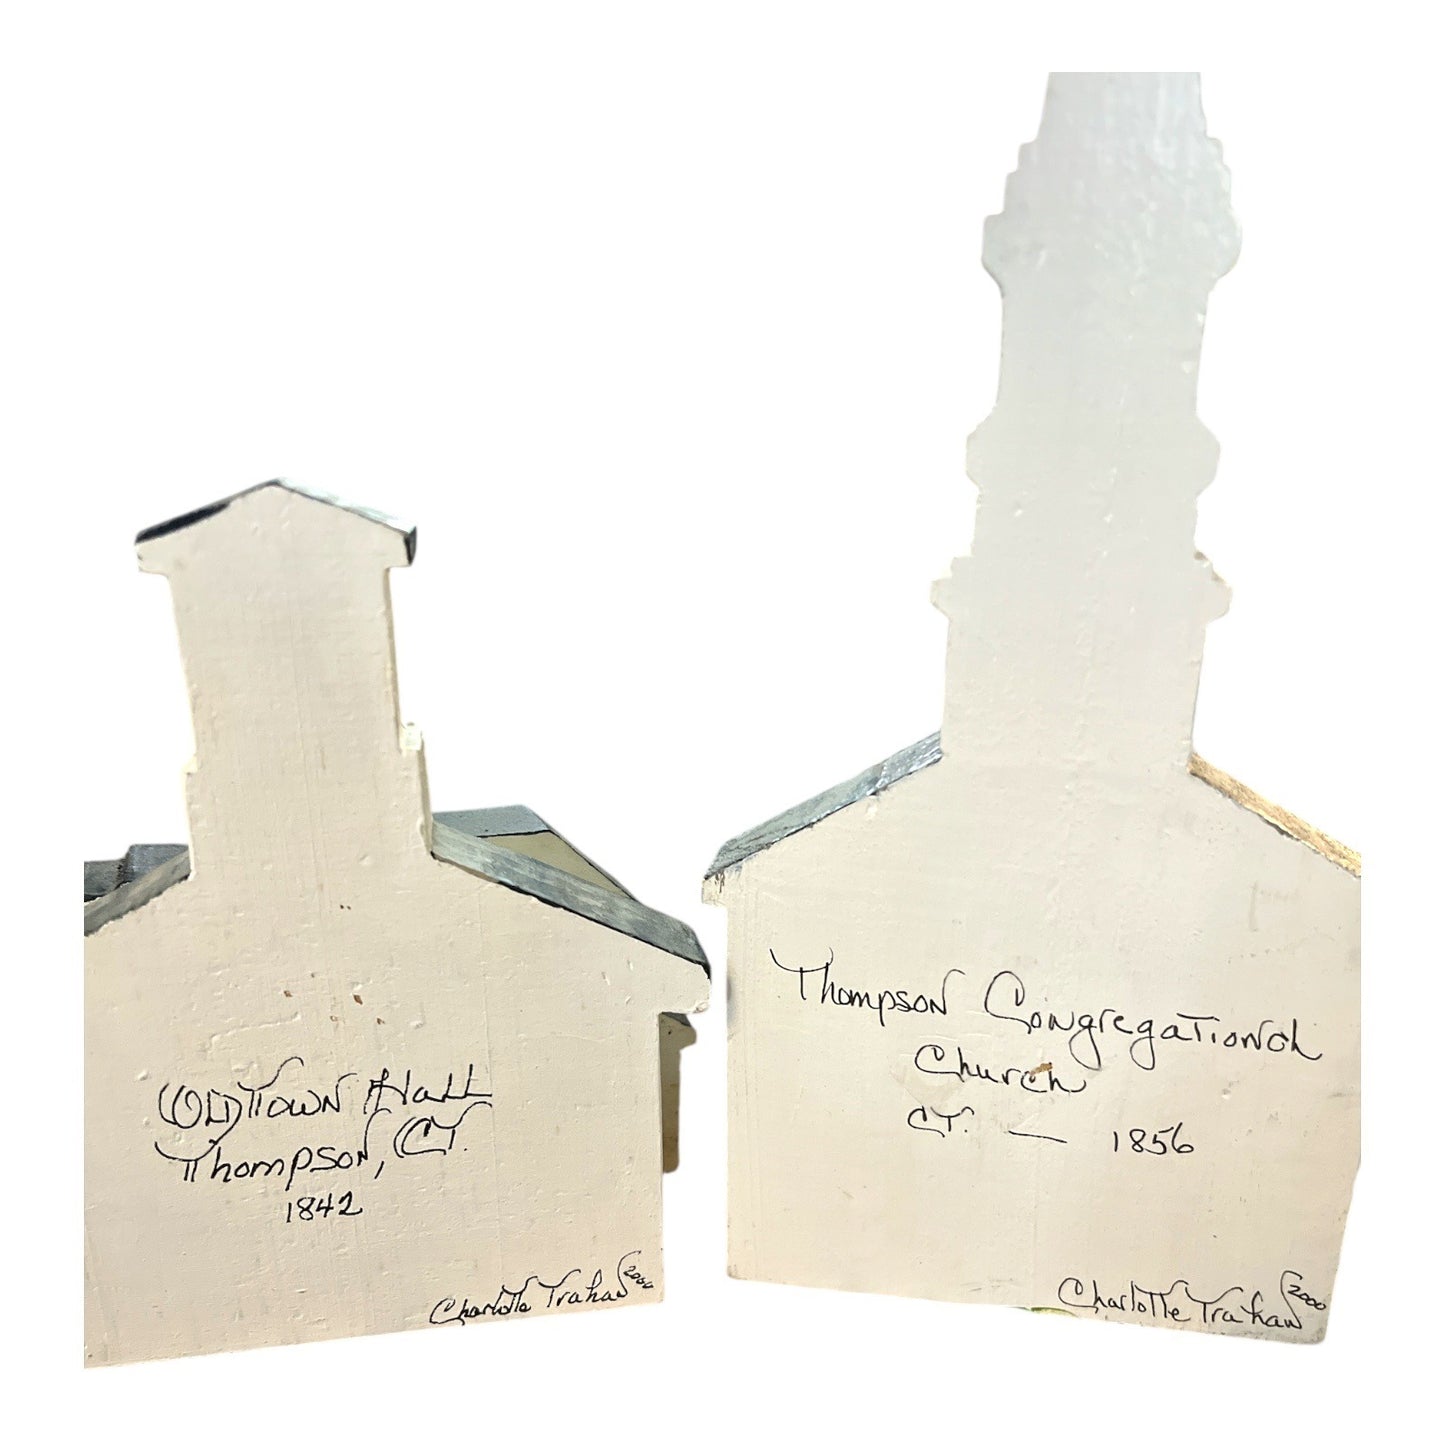 Old Town Hall
Thompson, CT.
1842
Charlotte Trahan 2000
Thompson Congregational
Church
CT. — 1856
Charlotte Trahan 2000